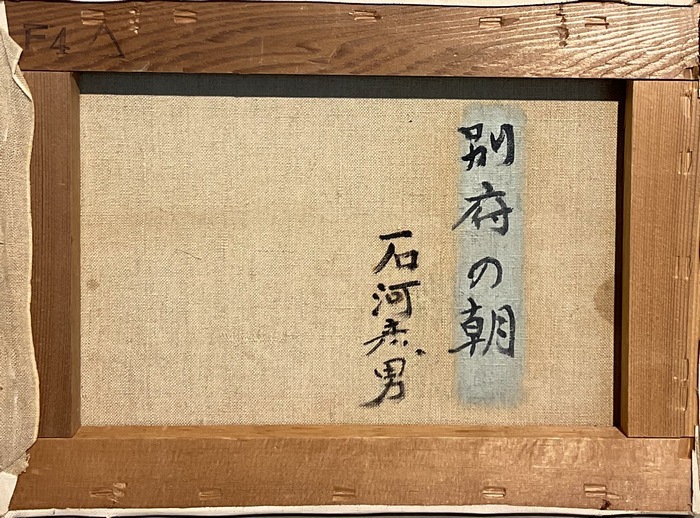 F4
別府の朝
石河彦男